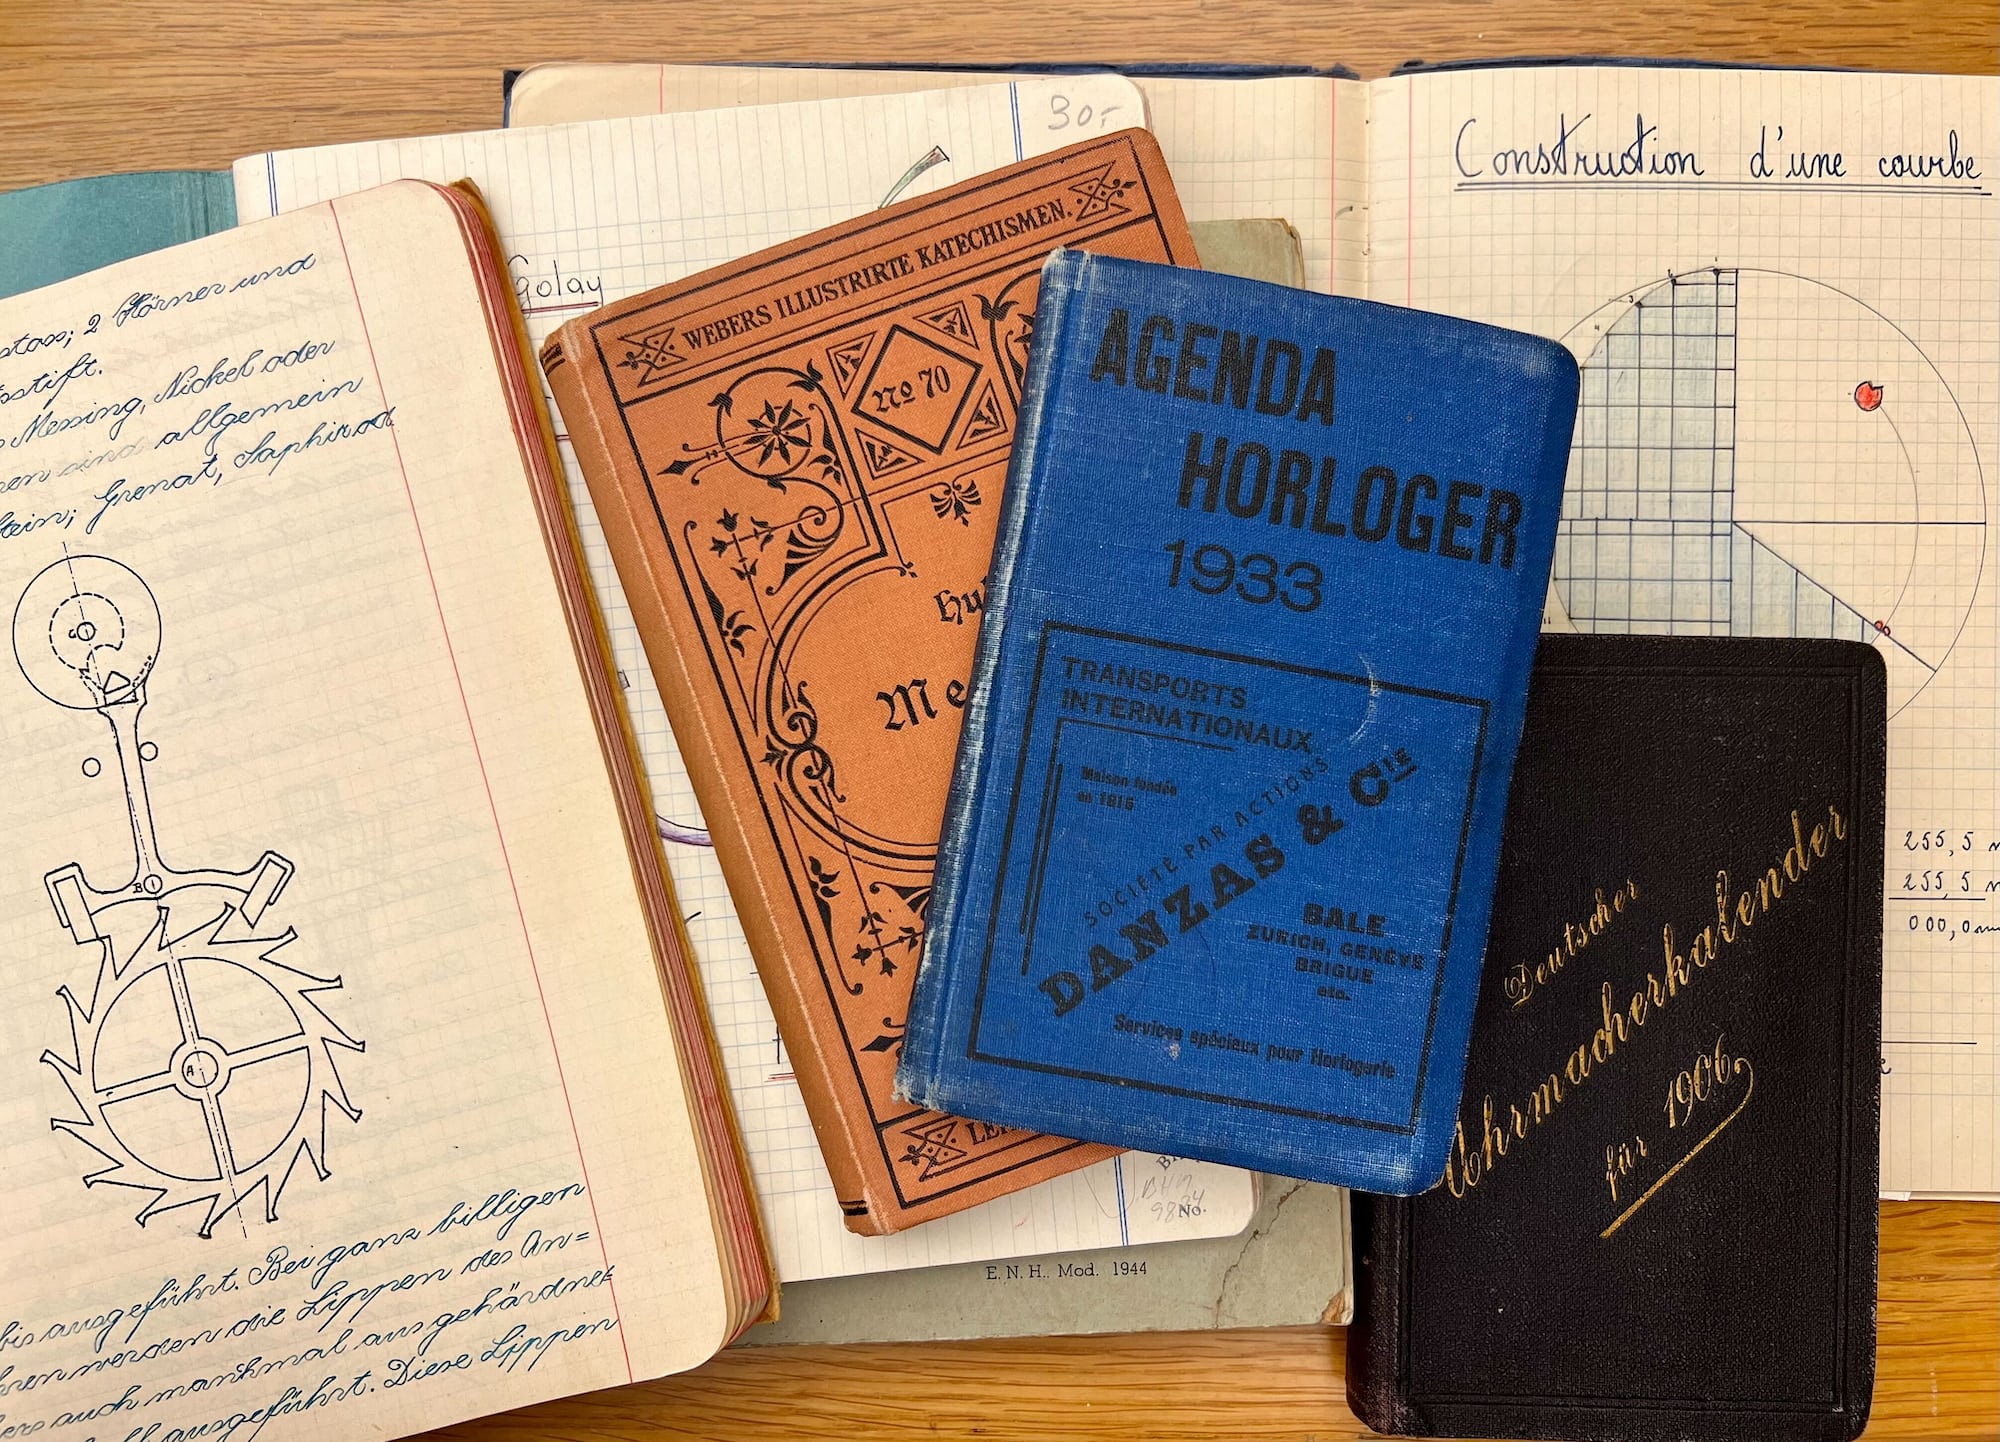 2 Hörner und
Messing, Nickel oder
sind allgemein
Grenat, Saphir od
C
B
A
ausgeführt. Bei ganz billigen
werden die Lippen des An=
auch manchmal aus gehärdne=
ausgeführt. Diese Lippen
30.-
Golay
WEBERS ILLUSTRIRTE KATECHISMEN.
No 70
AGENDA
HORLOGER
1933
TRANSPORTS
INTERNATIONAUX
Maison fondée
en 1815
SOCIÉTÉ PAR ACTIONS
DANZAS & CIE
BALE
ZURICH, GENÈVE
BRIGUE
etc.
Services spéciaux pour Horlogerie
No.
E. N. H. Mod. 1944
Construction d'une courbe
255,5
255,5
000,0
Deutscher
Uhrmacherkalender
für 1906.